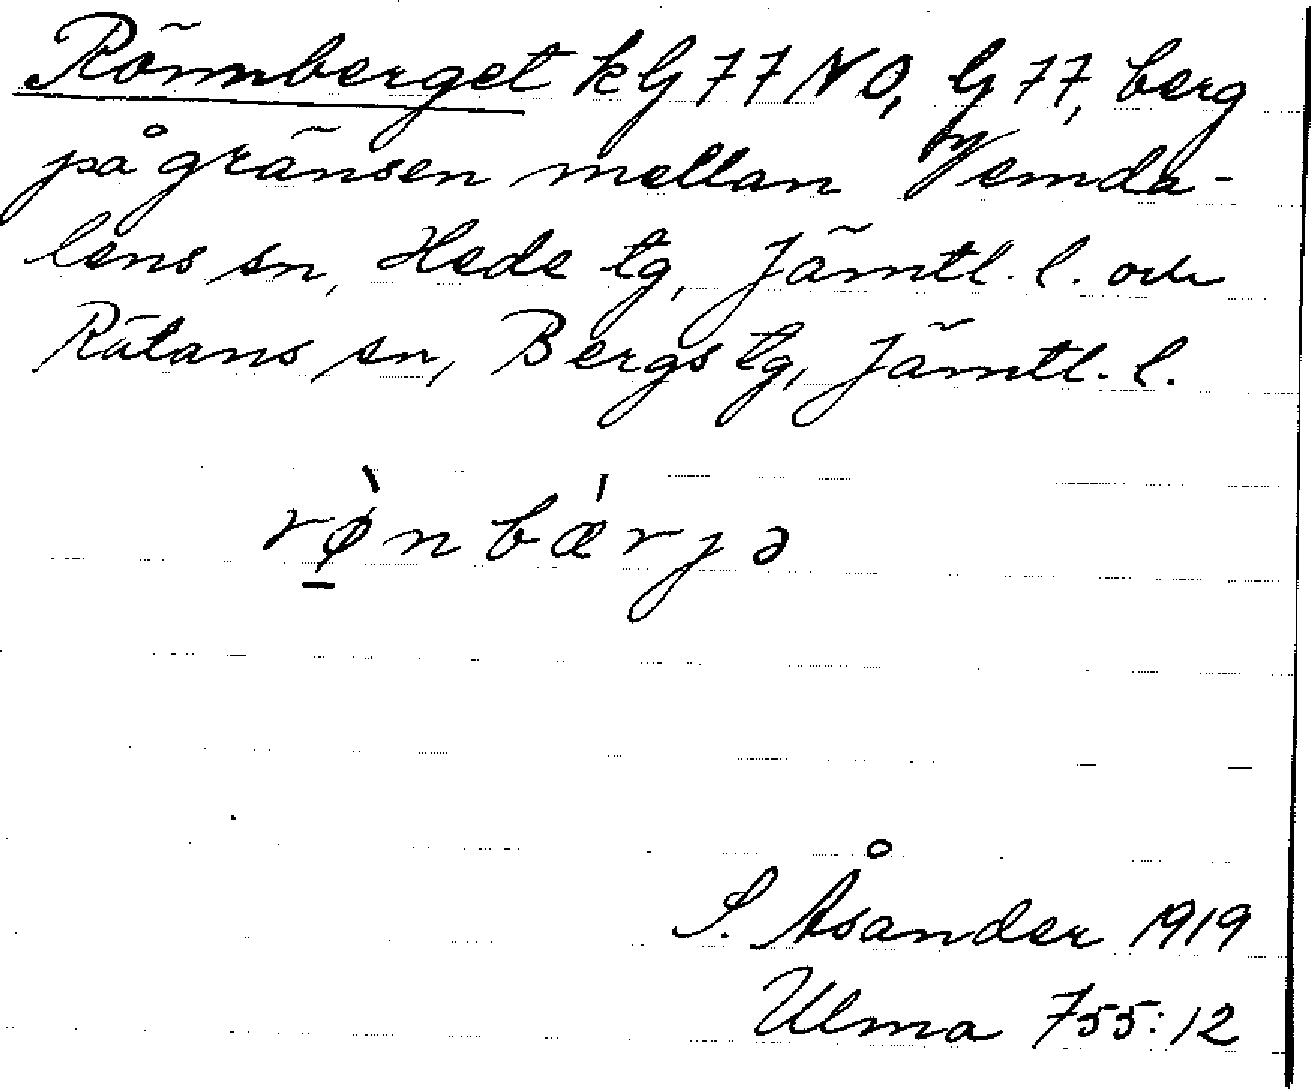 Rönnberget kG 77 NO, G 77, berg
på gränsen mellan Vemda-
lens sn, Hede tg, Jämtl. l. och
Rätans sn, Bergs tg, Jämtl. l.
rø̀nbǽrjə
S. Åsander 1919
Ulma 755:12